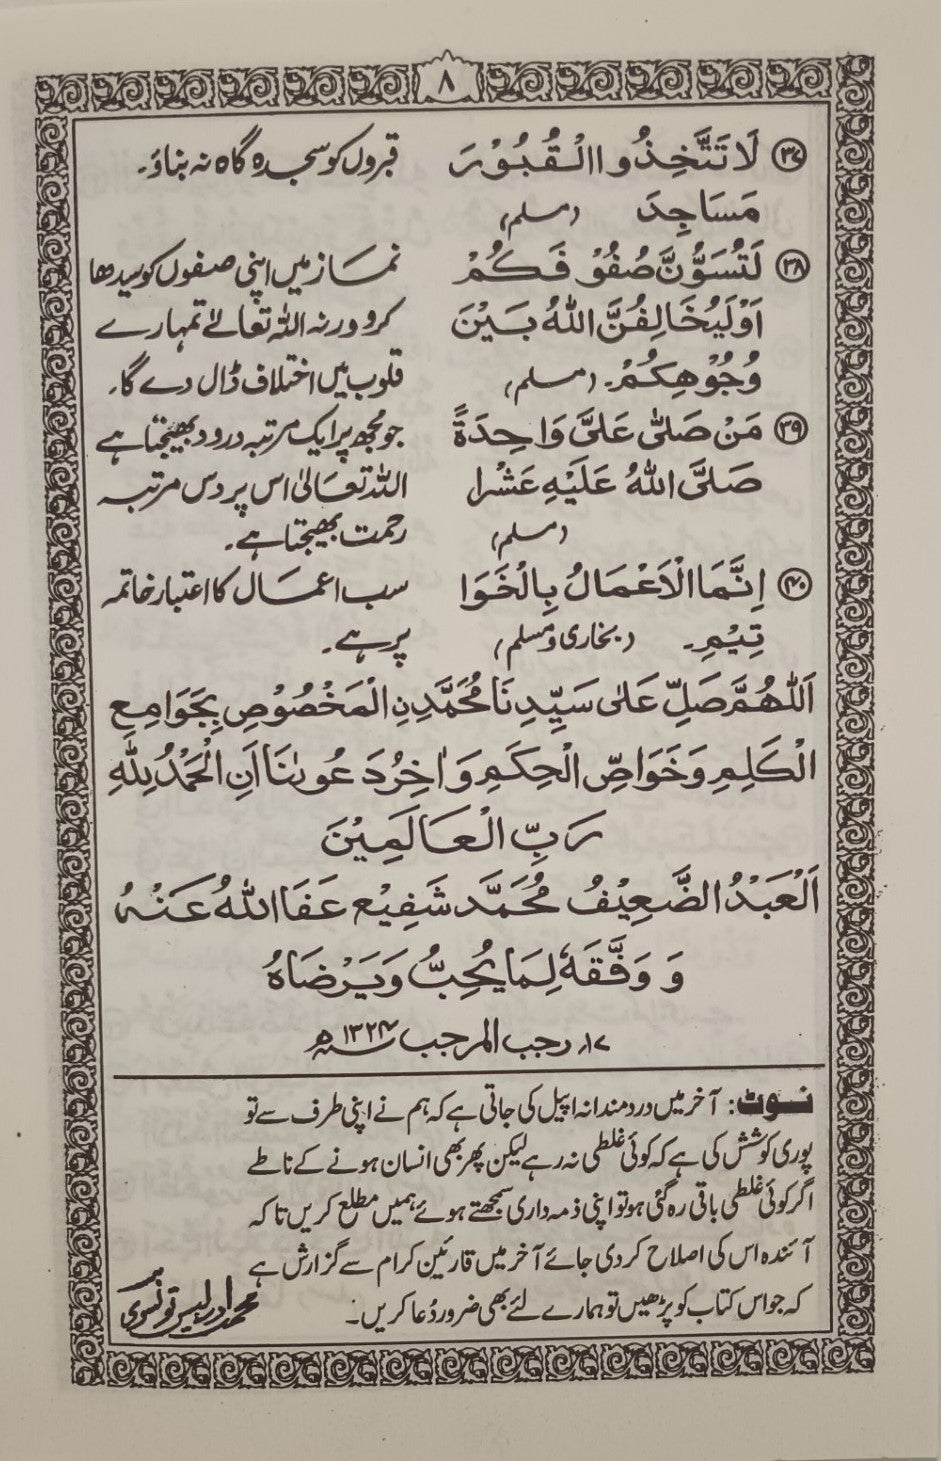 ۸
۳۷ لَا تَتَّخِذُوا الْقُبُوْرَ قبروں کو سجدہ گاہ نہ بناؤ۔
مَسَاجِدَ (مسلم)
۳۸ لَتُسَوُّنَّ صُفُوْفَكُمْ نماز میں اپنی صفوں کو سیدھا
اَوْلَيُخَالِفَنَّ اللّٰهُ بَيْنَ کرو ورنہ اللہ تعالےٰ تمہارے
وُجُوْهِكُمْ۔ (مسلم) قلوب میں اختلاف ڈال دے گا۔
۳۹ مَنْ صَلّٰى عَلَيَّ وَاحِدَةً جو مجھ پر ایک مرتبہ درود بھیجتا ہے
صَلَّى اللّٰهُ عَلَيْهِ عَشْرا اللہ تعالیٰ اس پر دس مرتبہ
(مسلم) رحمت بھیجتا ہے۔
۴۰ اِنَّمَا الْاَعْمَالُ بِالْخَوَا سب اعمال کا اعتبار خاتمہ
تِيْمِ۔ (بخاری و مسلم) پر ہے۔
اَللّٰهُمَّ صَلِّ عَلٰى سَيِّدِنَا مُحَمَّدِنِ الْمَخْصُوْصِ بِجَوَامِعِ
الْكَلِمِ وَخَوَاصِّ الْحِكَمِ وَاٰخِرُ دَعْوٰىنَا اَنِ الْحَمْدُ لِلّٰهِ
رَبِّ الْعَالَمِيْنَ
اَلْعَبْدُ الضَّعِيْفُ مُحَمَّد شَفِيْع عَفَا اللّٰهُ عَنْهُ
وَ وَفَّقَهٗ لِمَا يُحِبُّ وَيَرْضَاهُ
۱۷؍ رجب المرجب ۱۳۲۴ھ
نوٹ: آخر میں دردمندانہ اپیل کی جاتی ہے کہ ہم نے اپنی طرف سے تو
پوری کوشش کی ہے کہ کوئی غلطی نہ رہے لیکن پھر بھی انسان ہونے کے ناطے
اگر کوئی غلطی باقی رہ گئی ہو تو اپنی ذمہ داری سمجھتے ہوئے ہمیں مطلع کریں تاکہ
آئندہ اس کی اصلاح کر دی جائے آخر میں قارئین کرام سے گزارش ہے
کہ جو اس کتاب کو پڑھیں تو ہمارے لئے بھی ضرور دُعا کریں۔ محمد ادریس تونسوی